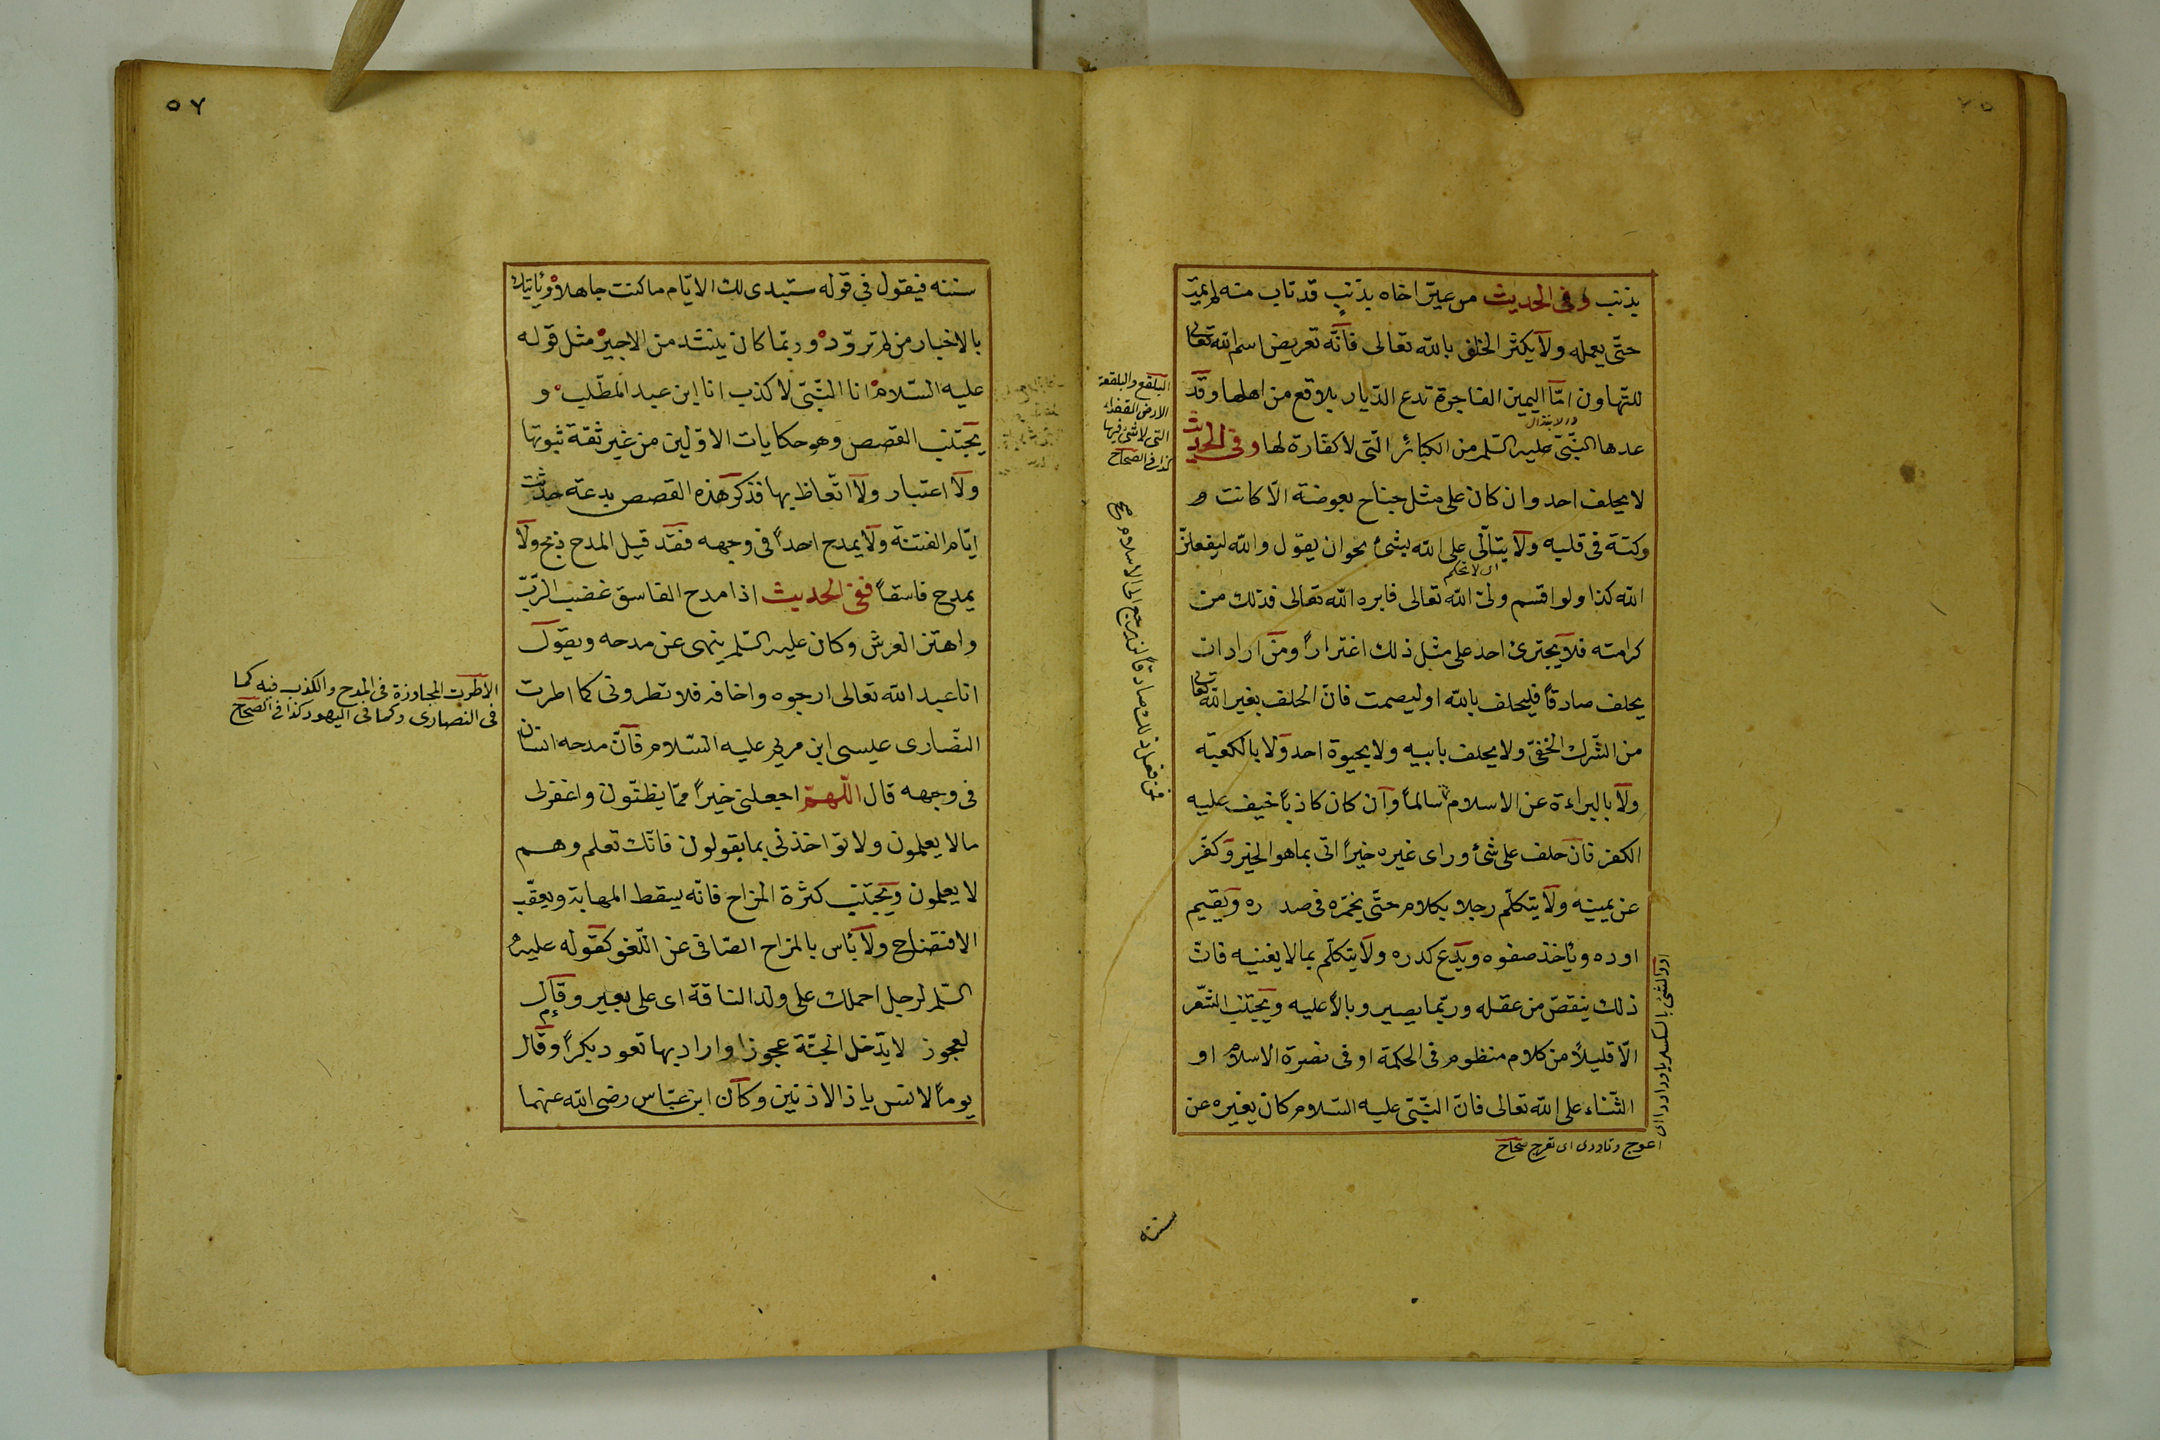 بذنب وفى الحديث من عيّر اخاه بذنب قد تاب منه لم يمت
حتّى يعمله ولا يكثر الحلف بالله تعالى فانّه تعريض اسم الله تعالى
للتهاون امّا اليمين الفاجرة تدع الدّيار بلاقع من اهلها وقد
والابتذال
عدها النّبىّ عليه السّلم من الكبائر الّتى لا كفارة لها وفى الحديث
لا يحلف احد وان كان على مثل جناح بعوضة الّا كانت
وكتة فى قلبه ولا يتألّى على الله بشئ نحو ان يقول والله ليفعلنّ
اى لا يحكم
الله كذا ولو اقسم ولىّ الله تعالى فابره الله تعالى فذلك من
كرامته فلا يجترئ احد على مثل ذلك اغتراراً ومن اراد ان
يحلف صادقاً فليحلف بالله او ليصمت فانّ الحلف بغير الله تعالى
من الشّرك الخفىّ ولا يحلف بابيه ولا بحيوة احد ولا بالكعبة
ولا بالبراءة عن الاسلام سالماً وان كان كاذباً خيف عليه
الكفر فان حلف على شئ وراى غيره خيراً اتى بما هو الخير وكفّر
عن يمينه ولا يتكلّم رجلا بكلام حتّى يخمّره فى صدره ويقيم
اوده ويأخذ صفوه ويدع كدره ولا يتكلّم بما لا يعنيه فانّ
ذلك ينقص من عقله وربّما يصير وبالاً عليه ويجتنب الشّعر
الّا قليلاً من كلام منظوم فى الحكمة او فى نصرة الاسلام او
الثّناء على الله تعالى فانّ النّبىّ عليه السّلام كان يغيره عن
البلقع والبلقعة
الارض القفراء
التى لا شئ فيها
كذا فى الصحاح
فمن فعل ذلك صادقاً لم يرجع الى الاسلام صح
اود الشئ بالكسر ياود اودا اى
اعوج وتاود اى تعوج صحاح
سننه
٥٧
سننه فيقول فى قوله ستبدى لك الايّام ما كنت جاهلاً ويأتيك
بالاخبار من لم تزوّد وربّما كان ينشد من الاجيز مثل قوله
عليه السّلام انا النّبىّ لا كذب انا ابن عبد المطّلب و
يجتنب القصص وهو حكايات الاوّلين من غير ثقة ثبوتها
ولا اعتبار ولا اتّعاظ بها فذكر هذه القصص بدعة حدثت
ايّام الفتنة ولا يمدح احداً فى وجهه فقد قيل المدح ذبح ولا
يمدح فاسقاً ففى الحديث اذا مدح الفاسق غضب الرّبّ
واهتز العرش وكان عليه السّلم ينهى عن مدحه ويقول
انا عبد الله تعالى ارجوه واخافه فلا تطرونى كما اطرت
النصّارى عيسى ابن مريم عليه السّلام فان مدحه انسان
فى وجهه قال اللّهمّ اجعلنى خيراً ممّا يظنّون واغفرلى
مالا يعلمون ولا تؤاخذنى بما يقولون فانّك تعلم وهم
لا يعلمون ويجتنب كثرة المزاح فانه يسقط المهابة ويعقّب
الافتضاح ولا بأس بالمزاح الصّافى عن اللّغو كقوله عليه
السّلم لرجل احملك على ولد الناقة اى على بعير وقال
لعجوز لا يدخل الجنّة عجوز اراد بها تعود بكراً وقال
يوماً لانس ياذا الاذنين وكان ابن عبّاس رضى الله عنهما
الاطرت المجاوزة فى المدح والكذب فيه كما
فى النصارى وكما فى اليهود كذا فى الصحاح